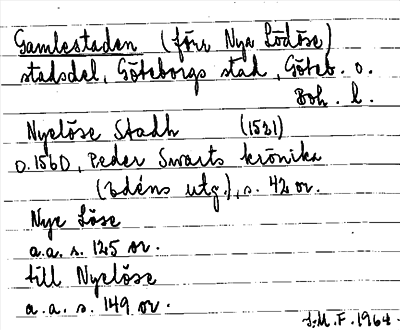 Gamlestaden (förr Nya Lödöse)
stadsdel, Göteborgs stad, Göteb. o.
Boh. l.
Nyelöse Stadh (1521)
o. 1560, Peder Swarts krönika
(Edéns utg.), s. 42 or.
Nye Löse
a.a. s. 125 or.
till Nyelöse
a.a. s. 149 or.
I.M.F. 1964.